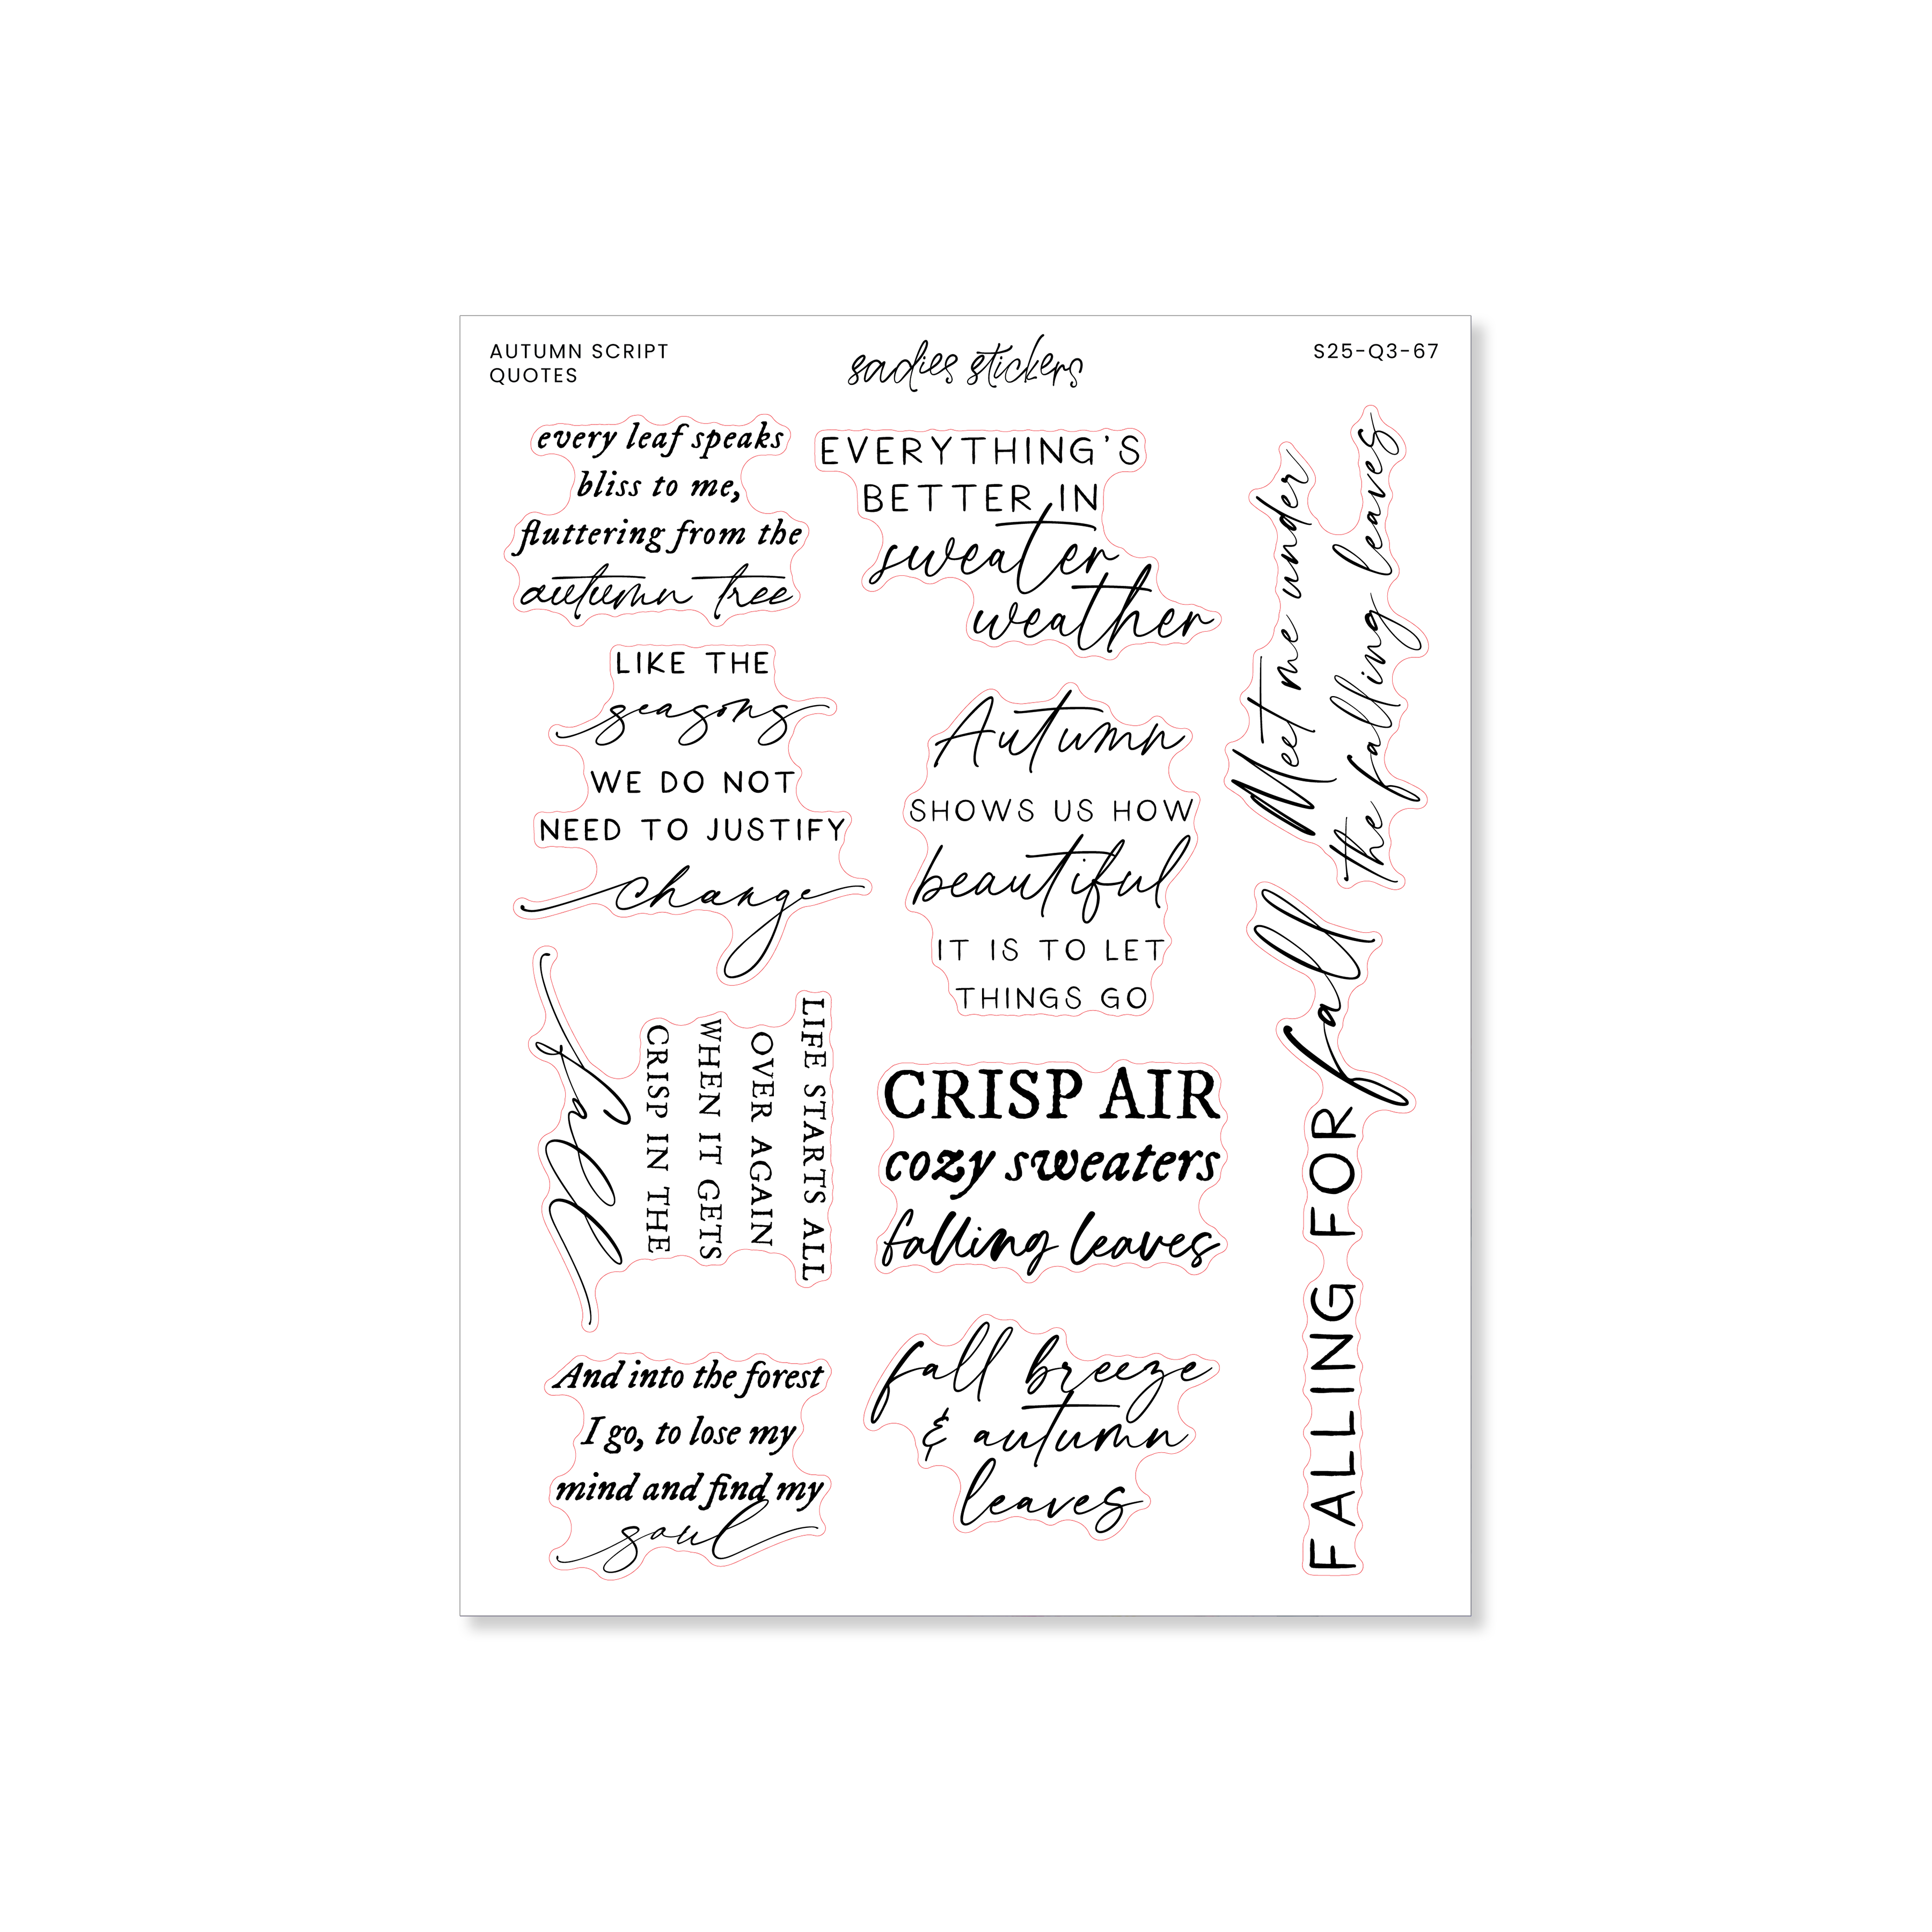 AUTUMN SCRIPT
QUOTES
sadies stickers
S25-Q3-67
every leaf speaks
bliss to me,
fluttering from the
autumn tree
EVERYTHING'S
BETTER IN
sweater
weather
Meet me under
the falling leaves
LIKE THE
seasons
WE DO NOT
NEED TO JUSTIFY
change
Autumn
SHOWS US HOW
beautiful
IT IS TO LET
THINGS GO
FALLING FOR fall
LIFE STARTS ALL
OVER AGAIN
WHEN IT GETS
CRISP IN THE
fall
CRISP AIR
cozy sweaters
falling leaves
And into the forest
I go, to lose my
mind and find my
soul
fall breeze
& autumn
leaves